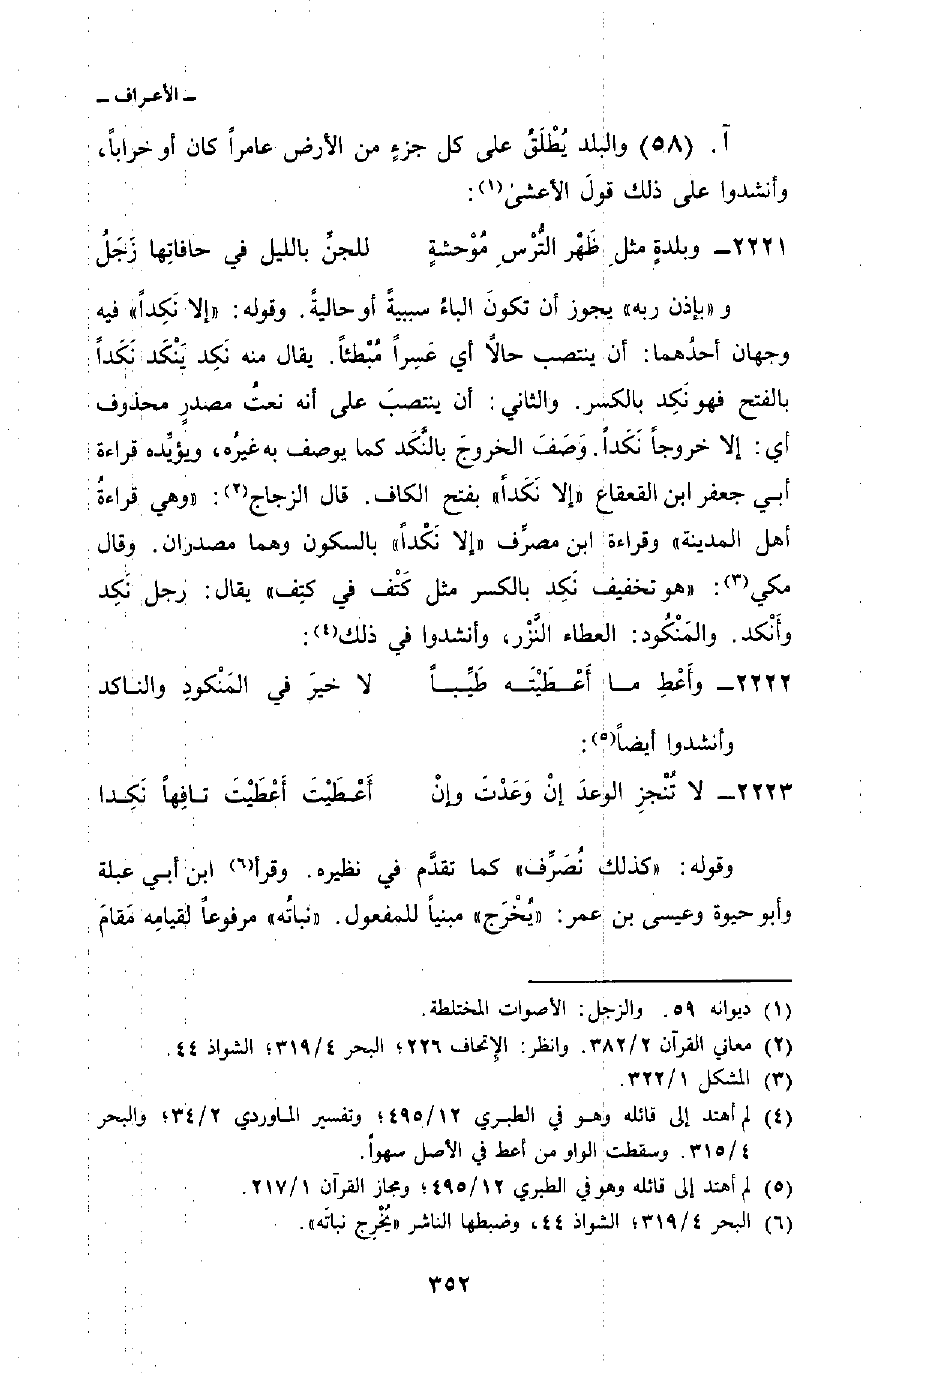 ـ الأعراف ـ
آ. (٥٨) والبلد يُطْلَقُ على كل جزءٍ من الأرض عامراً كان أو خراباً،
وأنشدوا على ذلك قولَ الأعشىٰ(١):
٢٢٢١ـ وبلدةٍ مثلِ ظَهْر التُّرْسِ مُوْحشةٍ للجنِّ بالليل في حافاتِها زَجَلُ
و «بإذن ربه» يجوز أن تكونَ الباءُ سببيةً أو حاليةً. وقوله: «إلا نَكِداً» فيه
وجهان أحدُهما: أن ينتصب حالاً أي عَسِراً مُبْطئاً. يقال منه نَكِد يَنْكَد نَكَداً
بالفتح فهو نَكِد بالكسر. والثاني: أن ينتصبَ على أنه نعتُ مصدرٍ محذوف
أي: إلا خروجاً نَكَداً. وَصَفَ الخروجَ بالنَّكَد كما يوصف به غيرُه، ويؤيِّده قراءة
أبي جعفر ابن القعقاع «إلا نَكَداً» بفتح الكاف. قال الزجاج(٢): «وهي قراءةُ
أهل المدينة» وقراءة ابن مصرِّف «إلا نَكْداً» بالسكون وهما مصدران. وقال
مكي(٣): «هو تخفيف نَكِد بالكسر مثل كَتْف في كتِف» يقال: رجل نَكِد
وأَنْكد. والمَنْكُود: العطاء النَّزْر، وأنشدوا في ذلك(٤):
٢٢٢٢ـ وأَعْطِ مـا أَعْـطَيْتَـه طَيِّبـاً لا خيرَ في المَنْكودِ والنـاكد
وأنشدوا أيضاً(٥):
٢٢٢٣ـ لا تُنْجزِ الوعدَ إنْ وَعَدْتَ وإنْ أَعْـطَيْتَ أَعْطَيْتَ تـافِهاً نَكِـدا
وقوله: «كذلك نُصَرِّف» كما تقدَّم في نظيره. وقرأ(٦) ابن أبي عبلة
وأبو حيوة وعيسى بن عمر: «يُخْرَج» مبنياً للمفعول. «نباتُه» مرفوعاً لقيامِه مَقامَ
(١) ديوانه ٥٩. والزجل: الأصوات المختلطة.
(٢) معاني القرآن ٣٨٢/٢. وانظر: الإتحاف ٢٢٦؛ البحر ٣١٩/٤؛ الشواذ ٤٤.
(٣) المشكل ٣٢٢/١.
(٤) لم أهتد إلى قائله وهـو في الطبري ٤٩٥/١٢؛ وتفسير المـاوردي ٣٤/٢؛ والبحر
٣١٥/٤. وسقطت الواو من أعط في الأصل سهواً.
(٥) لم أهتد إلى قائله وهو في الطبري ٤٩٥/١٢؛ ومجاز القرآن ٢١٧/١.
(٦) البحر ٣١٩/٤؛ الشواذ ٤٤، وضبطها الناشر «يُخْرِج نباتَه».
٣٥٢